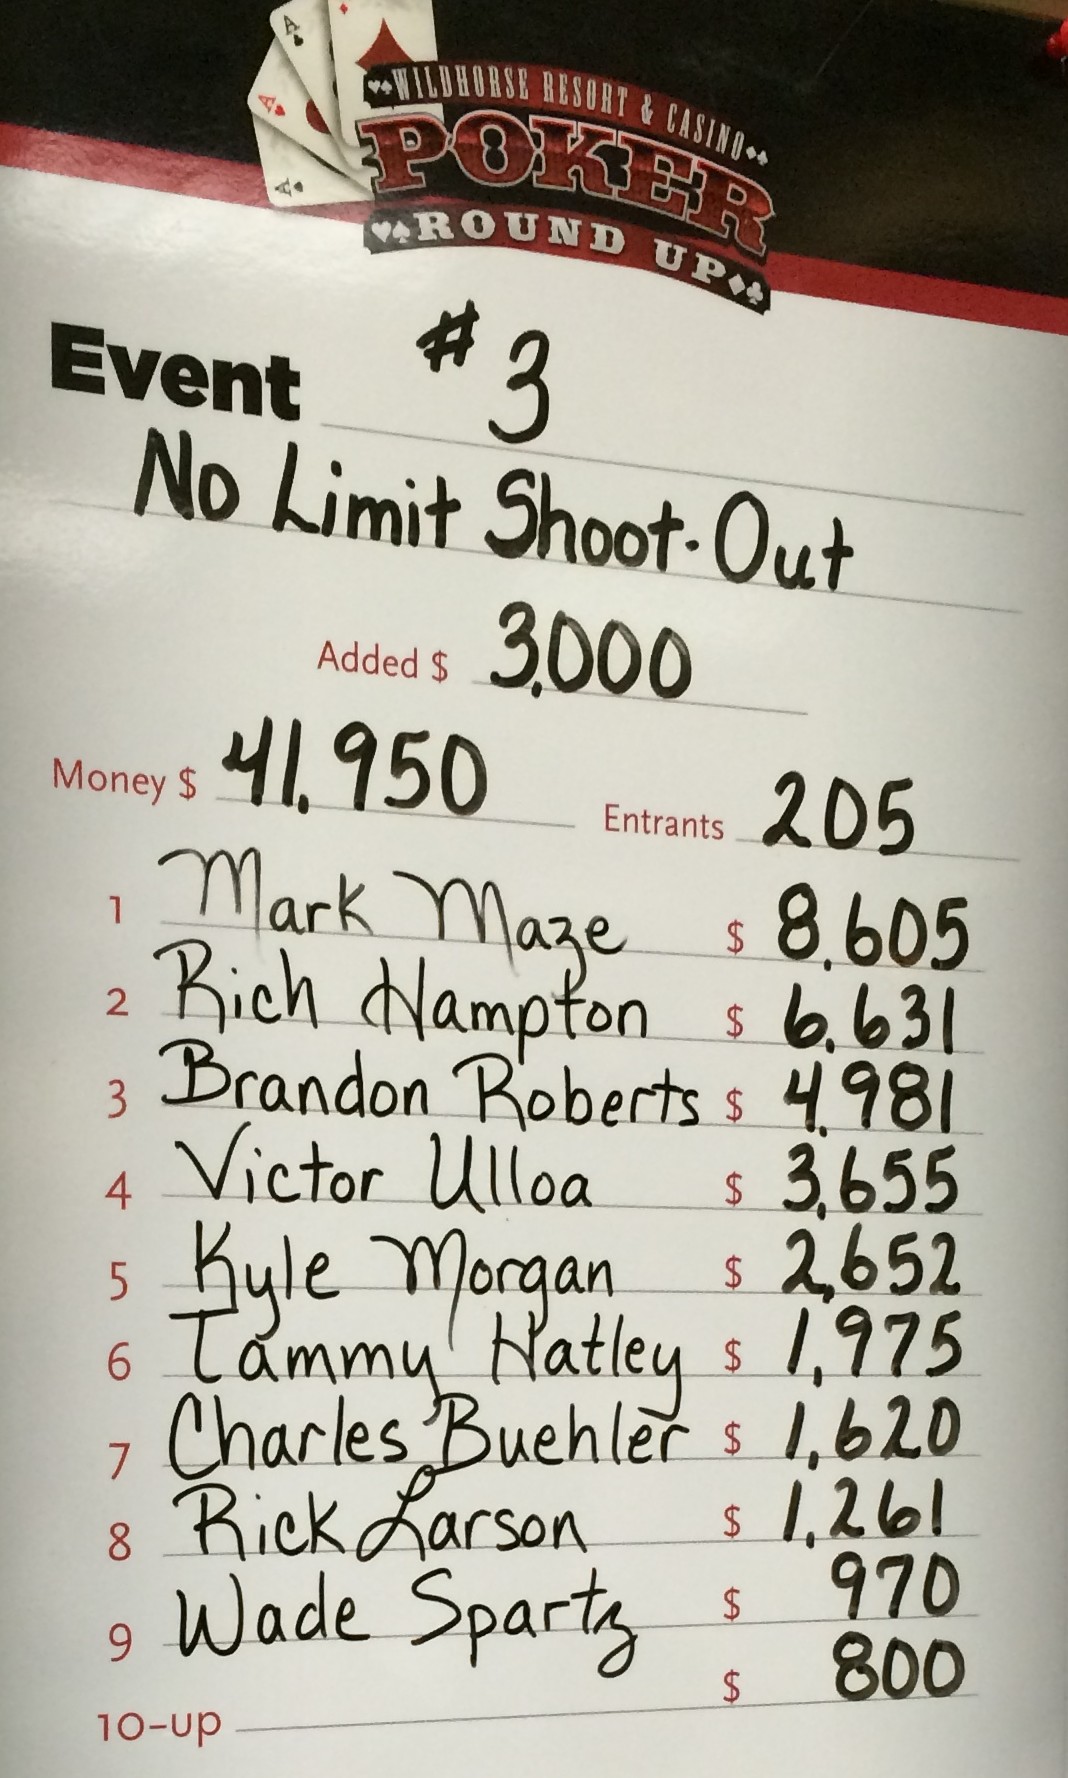 A
A
A
WILDHORSE RESORT & CASINO
POKER
ROUND UP
Event #3
No Limit Shoot-Out
Added $ 3,000
Money $ 41,950 Entrants 205
1 Mark Maze $ 8,605
2 Rich Hampton $ 6,631
3 Brandon Roberts $ 4,981
4 Victor Ulloa $ 3,655
5 Kyle Morgan $ 2,652
6 Tammy Hatley $ 1,975
7 Charles Buehler $ 1,620
8 Rick Larson $ 1,261
9 Wade Spartz $ 970
10-up $ 800